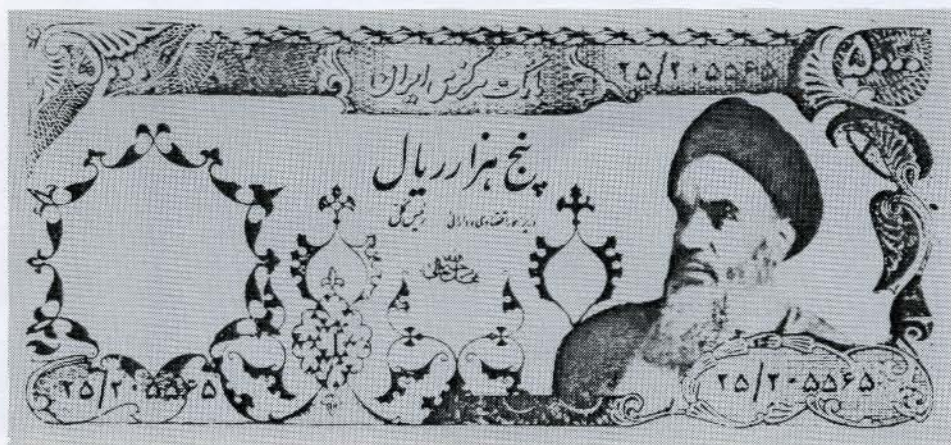 بانک مرکزی ایران
۲۵/۲۰۵۵۶۵
۵۰۰۰
پنج هزار ریال
وزیر امور اقتصادی و دارائی
رئیس کل
۲۵/۲۰۵۵۶۵
۲۵/۲۰۵۵۶۵